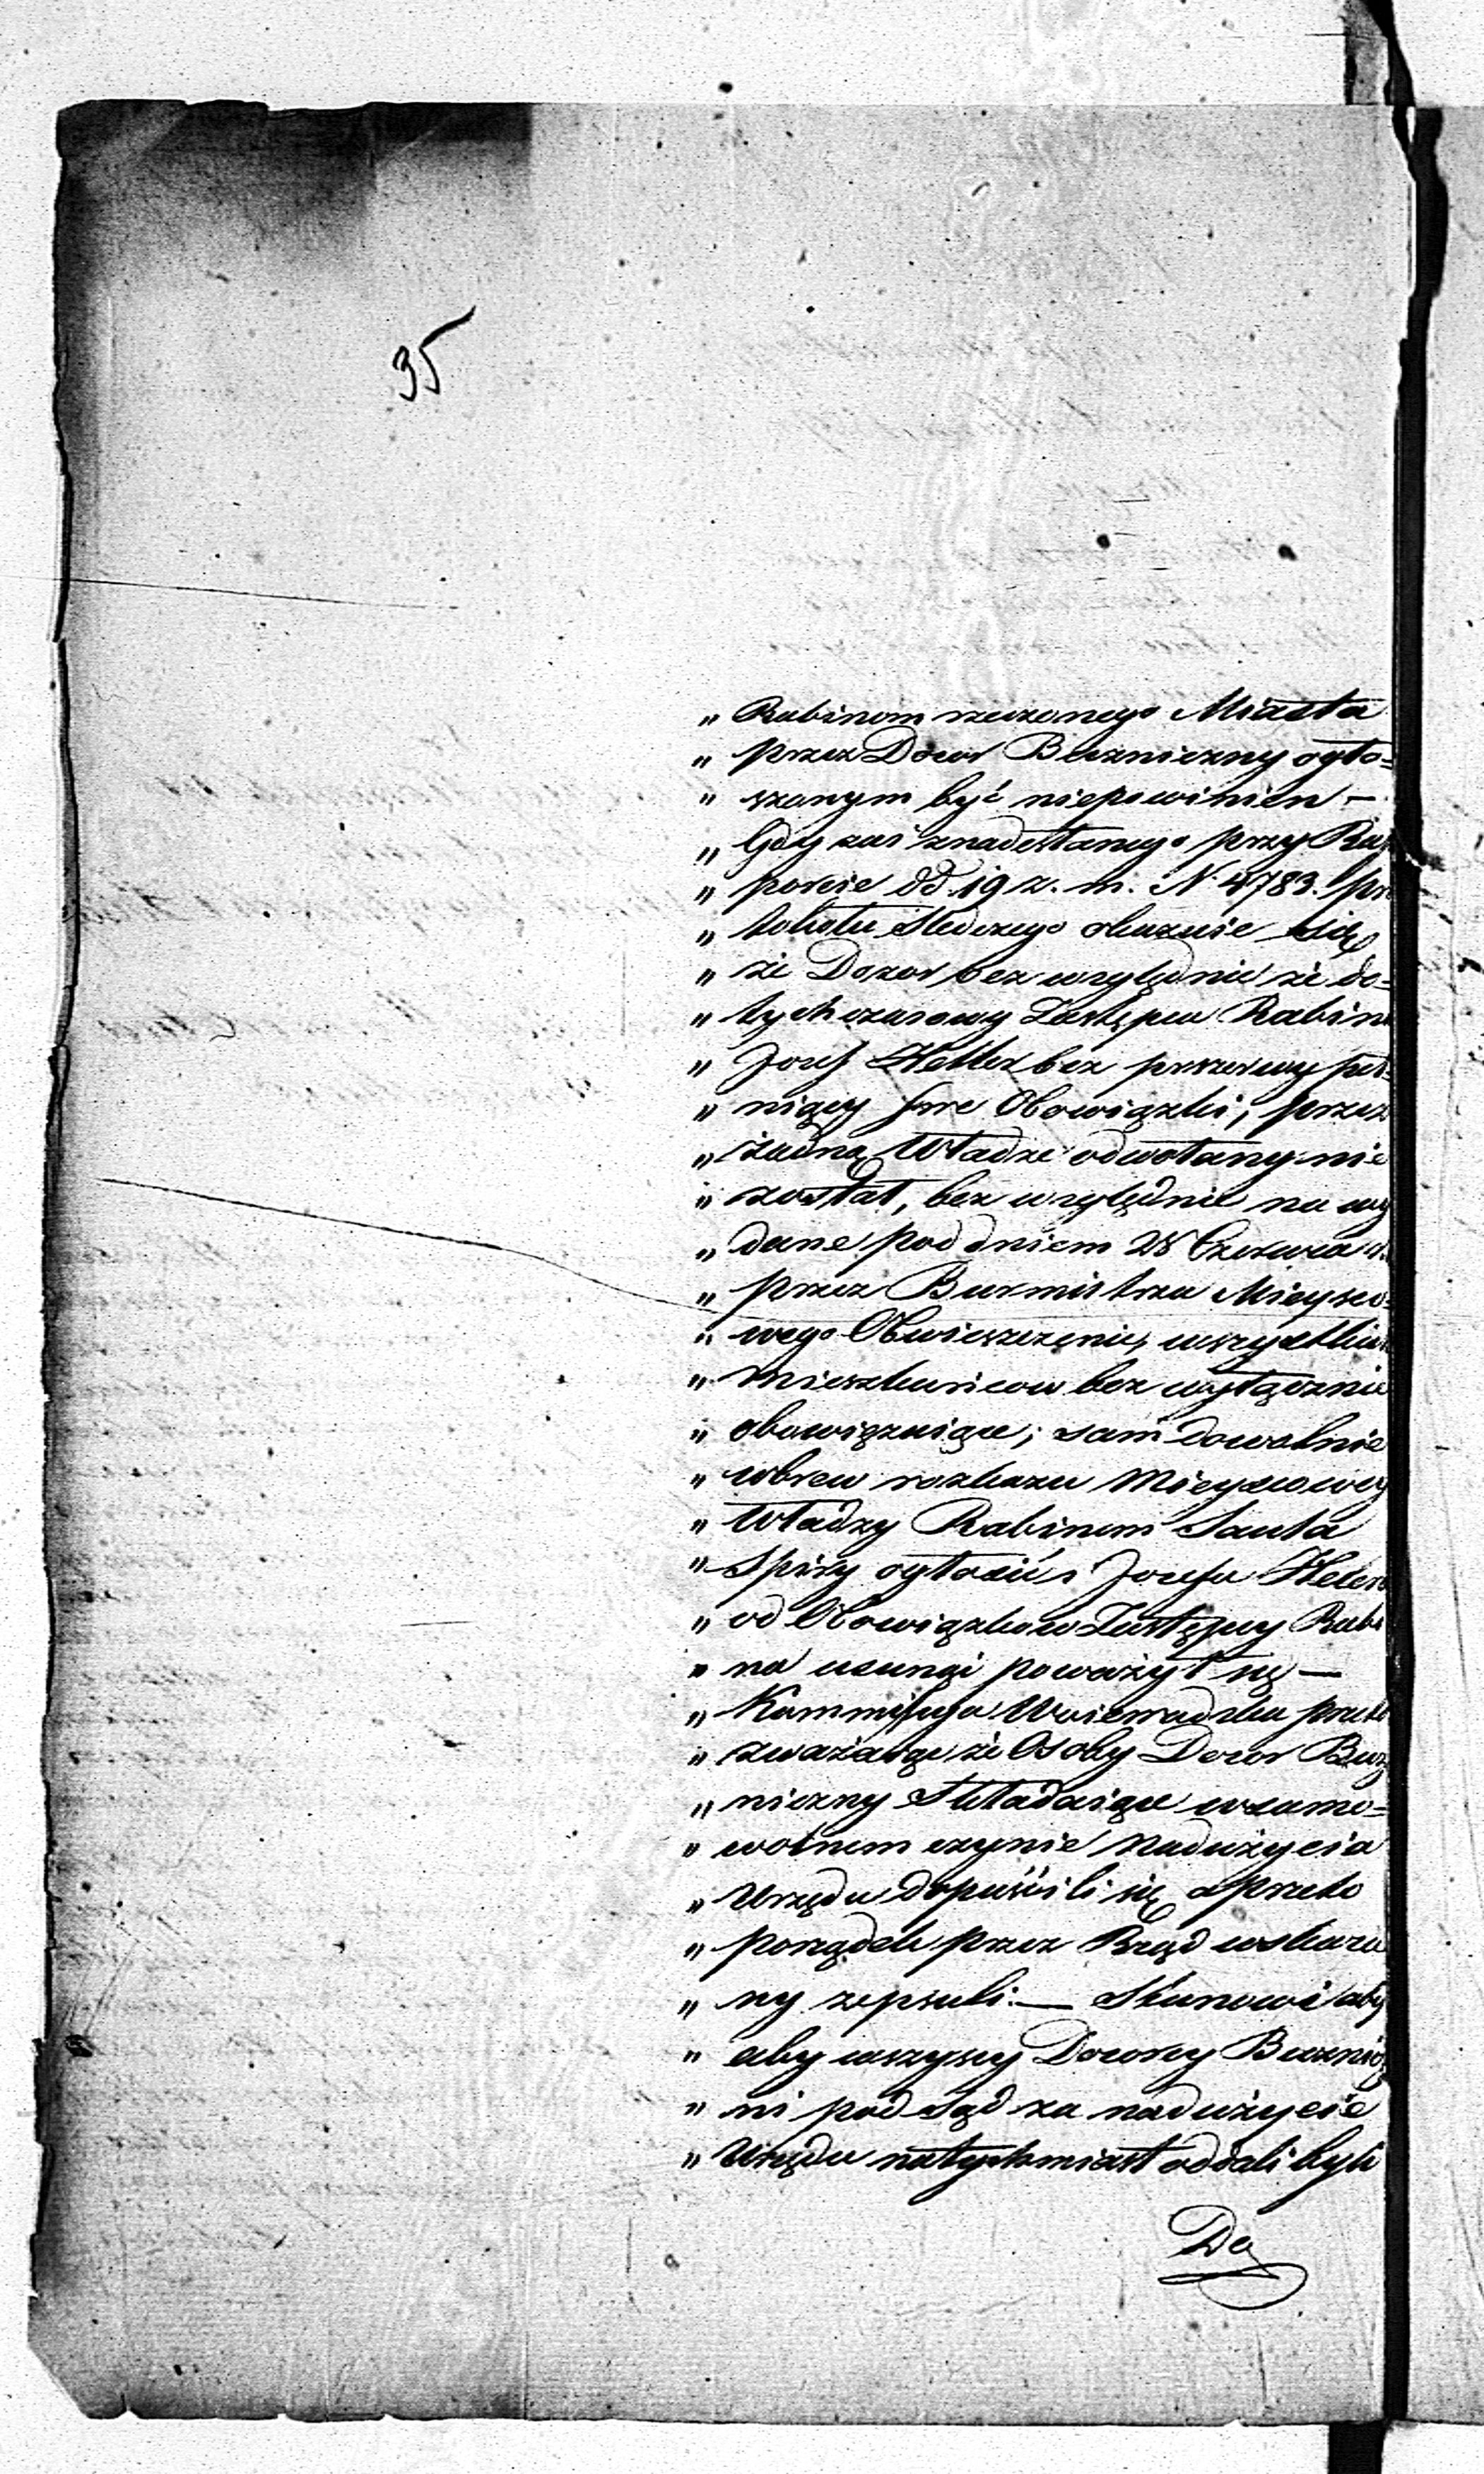 35
„ Rabinem rzeczonego Miasta
„ przez Dozor Bużniczny ogło=
„ szonym być niepowinien —
„ Gdy zaś znadesłanego przy Ra
„ porcie dd 19 z. m. N. 4783. pro
„ tokołu Sledczego okazuie się
„ że Dozor bez względnie że do=
„ tychczasowy Zastępca Rabina
„ Jozef Heller bez przerwy peł=
„ niący swe Obowiązki, przez
„ żadną Władze odwołany nie
„ został, bez względnie na wy
„ dane pod dniem 28 Czerwca r.
„ przez Burmistrza Mieysco=
„ wego Obwieszczenie, wszystkich
„ mieszkańcow bez wyłącznie
„ obowięzuiące; sam dowolnie
„ wbrew rozkazu Mieyscowey
„ Władzy Rabinem Saula
„ Spiry ogłosić i Jozefa Hellera
„ od Obowiązkow Zastępcy Rabi
„ na usunąć poważył się —
„ Kommissya Woiewodzka przeto
„ zważaiąc że Osoby Dozor Buż
„ niczny Składaiące w samo=
„ wolnem czynie Nadużycia
„ Urzędu dopuścili się a przeto
„ porządek przez Rząd wskaza
„ ny zepsuli. — Stanowi aby
„ aby wszyscy Dozorcy Bużnicz
„ ni pod Sąd za nadużycie
„ Urzędu natychmiast oddali byli